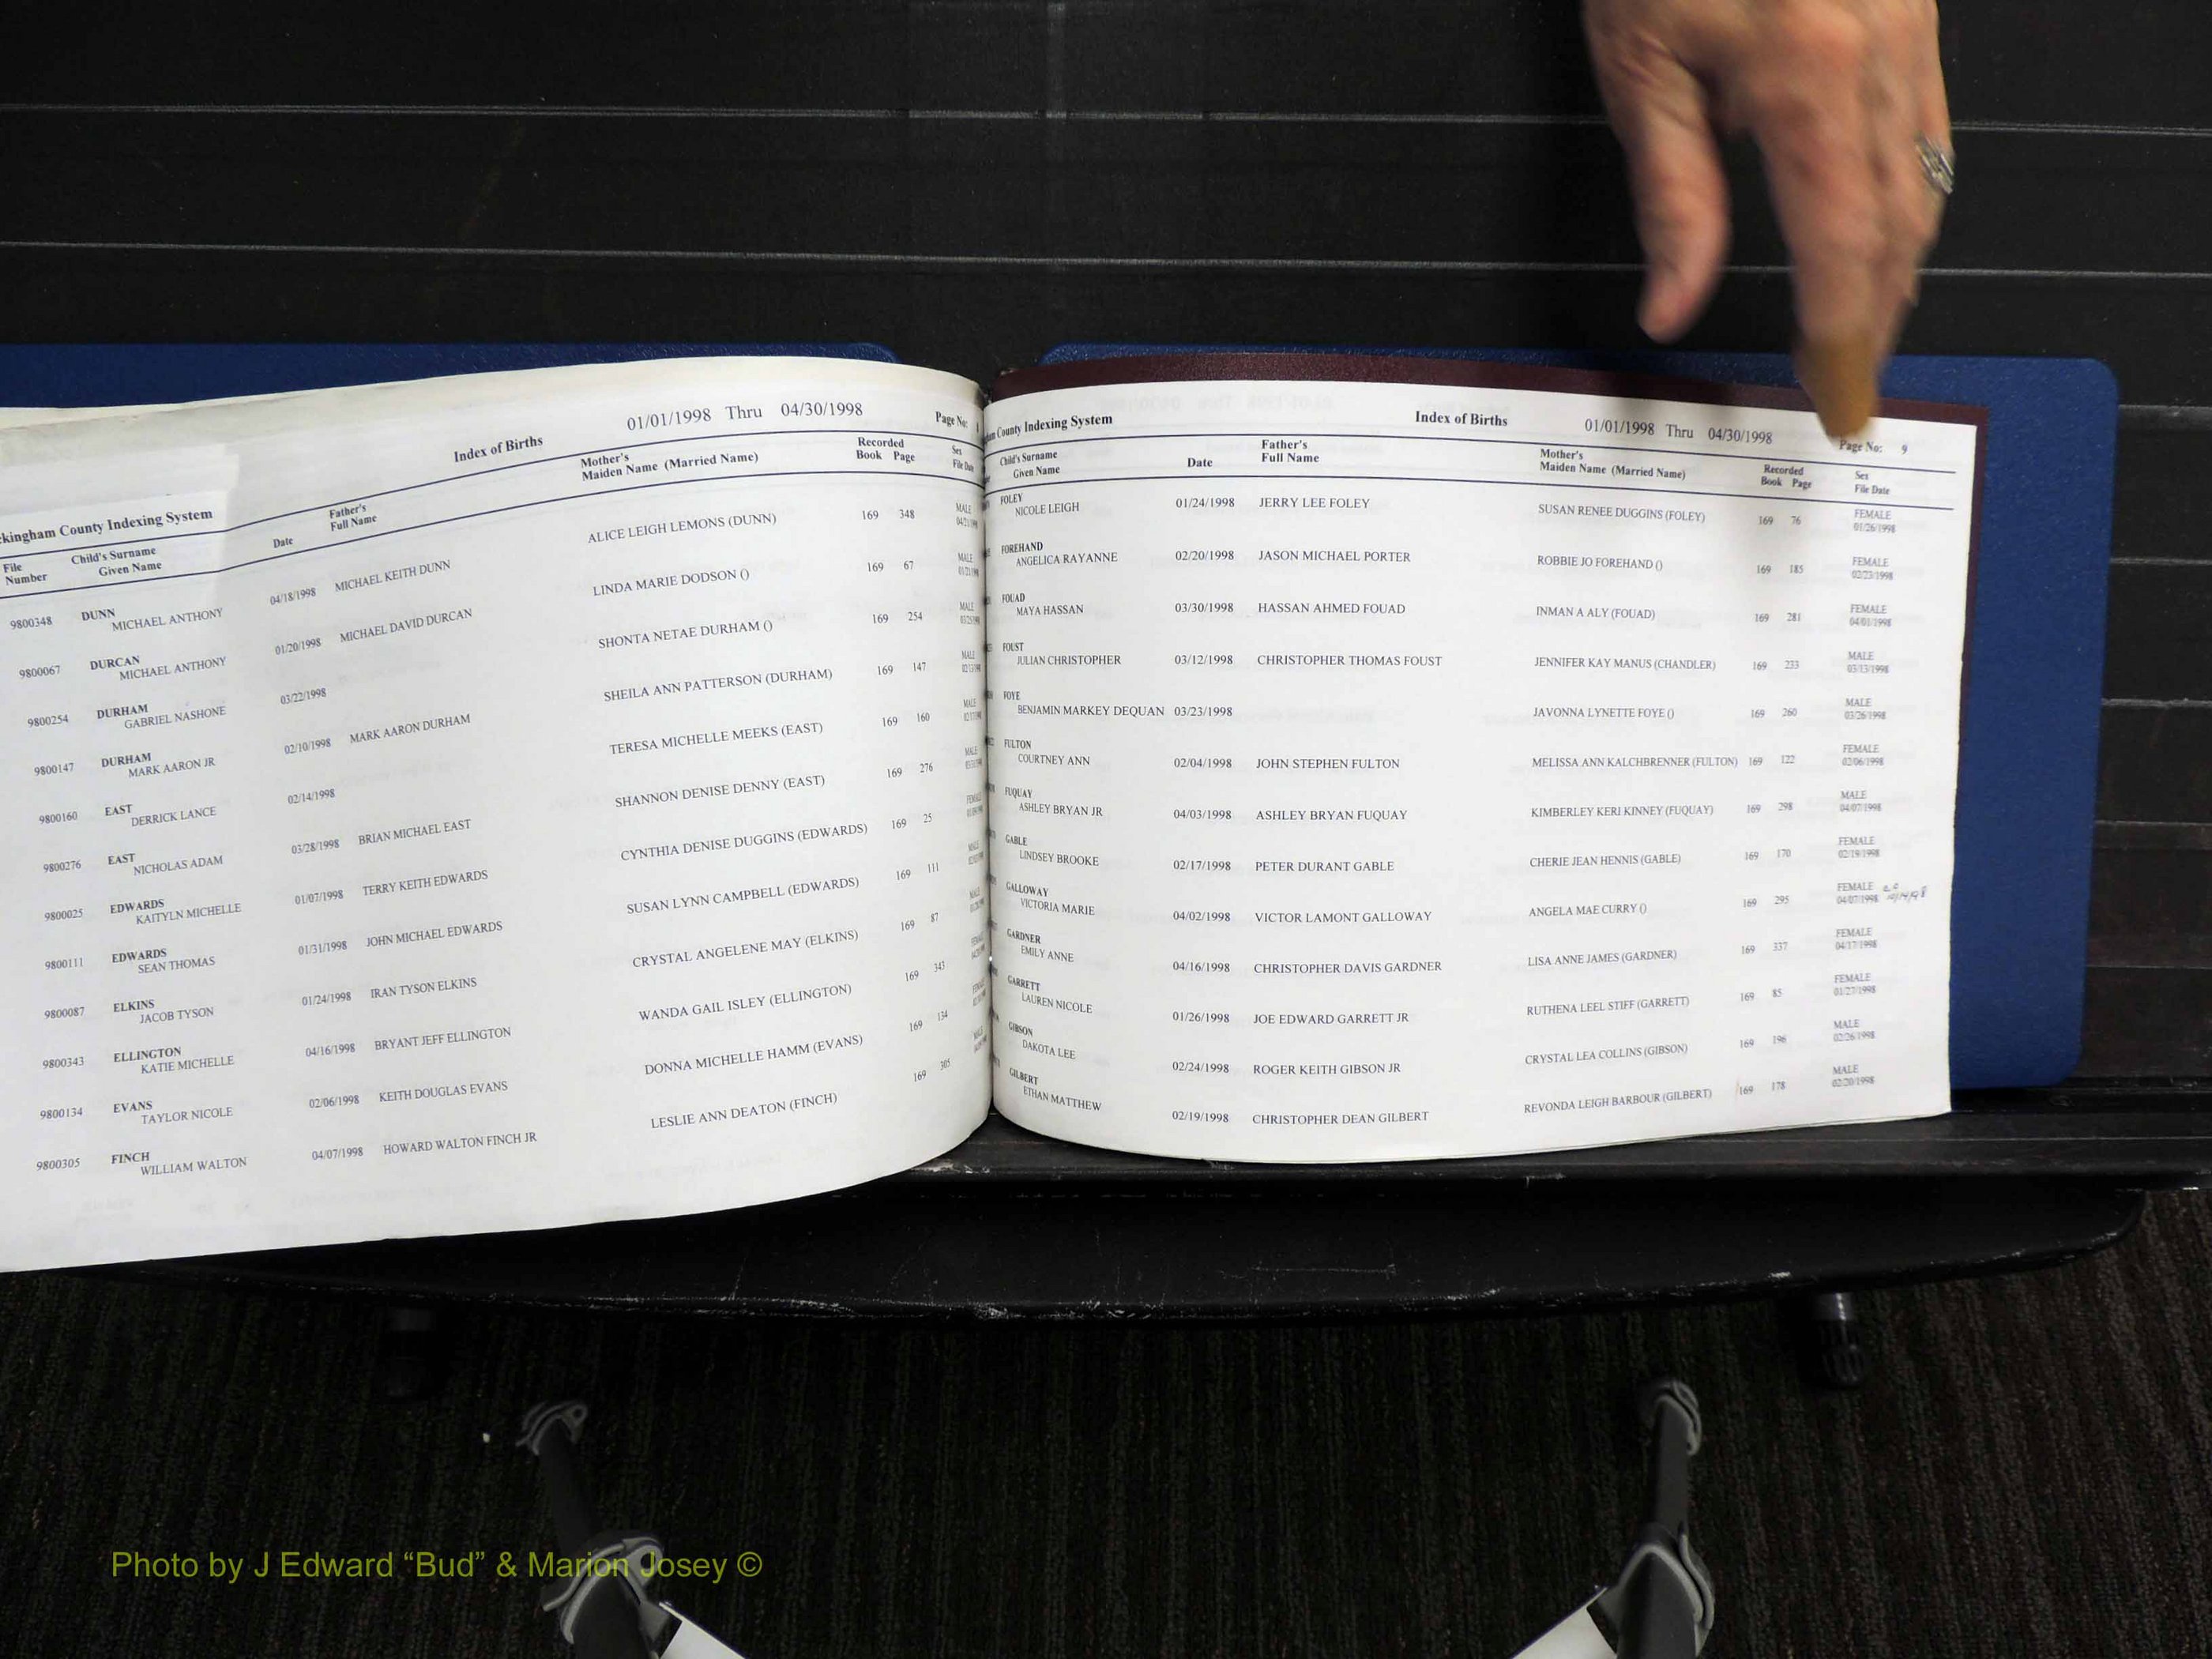 kingham County Indexing System Index of Births 01/01/1998 Thru 04/30/1998 Page No:
File Number Child's Surname Given Name Date Father's Full Name Mother's Maiden Name (Married Name) Recorded Book Page Sex File Date
9800348 DUNN MICHAEL ANTHONY 04/18/1998 MICHAEL KEITH DUNN ALICE LEIGH LEMONS (DUNN) 169 348 MALE
9800067 DURCAN MICHAEL ANTHONY 01/20/1998 MICHAEL DAVID DURCAN LINDA MARIE DODSON () 169 67 MALE
9800254 DURHAM GABRIEL NASHONE 03/22/1998 SHONTA NETAE DURHAM () 169 254 MALE
9800147 DURHAM MARK AARON JR 02/10/1998 MARK AARON DURHAM SHEILA ANN PATTERSON (DURHAM) 169 147 MALE
9800160 EAST DERRICK LANCE 02/14/1998 TERESA MICHELLE MEEKS (EAST) 169 160 MALE
9800276 EAST NICHOLAS ADAM 03/28/1998 BRIAN MICHAEL EAST SHANNON DENISE DENNY (EAST) 169 276 MALE
9800025 EDWARDS KAITYLN MICHELLE 01/07/1998 TERRY KEITH EDWARDS CYNTHIA DENISE DUGGINS (EDWARDS) 169 25 FEMALE
9800111 EDWARDS SEAN THOMAS 01/31/1998 JOHN MICHAEL EDWARDS SUSAN LYNN CAMPBELL (EDWARDS) 169 111 MALE
9800087 ELKINS JACOB TYSON 01/24/1998 IRAN TYSON ELKINS CRYSTAL ANGELENE MAY (ELKINS) 169 87 MALE
9800343 ELLINGTON KATIE MICHELLE 04/16/1998 BRYANT JEFF ELLINGTON WANDA GAIL ISLEY (ELLINGTON) 169 343
9800134 EVANS TAYLOR NICOLE 02/06/1998 KEITH DOUGLAS EVANS DONNA MICHELLE HAMM (EVANS) 169 134
9800305 FINCH WILLIAM WALTON 04/07/1998 HOWARD WALTON FINCH JR LESLIE ANN DEATON (FINCH) 169 305
County Indexing System Index of Births 01/01/1998 Thru 04/30/1998 Page No: 9
Child's Surname Given Name Date Father's Full Name Mother's Maiden Name (Married Name) Recorded Book Page Sex File Date
FOLEY NICOLE LEIGH 01/24/1998 JERRY LEE FOLEY SUSAN RENEE DUGGINS (FOLEY) 169 76 FEMALE 01/26/1998
FOREHAND ANGELICA RAYANNE 02/20/1998 JASON MICHAEL PORTER ROBBIE JO FOREHAND () 169 185 FEMALE 02/23/1998
FOUAD MAYA HASSAN 03/30/1998 HASSAN AHMED FOUAD INMAN A ALY (FOUAD) 169 281 FEMALE 04/01/1998
FOUST JULIAN CHRISTOPHER 03/12/1998 CHRISTOPHER THOMAS FOUST JENNIFER KAY MANUS (CHANDLER) 169 233 MALE 03/13/1998
FOYE BENJAMIN MARKEY DEQUAN 03/23/1998 JAVONNA LYNETTE FOYE () 169 260 MALE 03/26/1998
FULTON COURTNEY ANN 02/04/1998 JOHN STEPHEN FULTON MELISSA ANN KALCHBRENNER (FULTON) 169 122 FEMALE 02/06/1998
FUQUAY ASHLEY BRYAN JR 04/03/1998 ASHLEY BRYAN FUQUAY KIMBERLEY KERI KINNEY (FUQUAY) 169 298 MALE 04/07/1998
GABLE LINDSEY BROOKE 02/17/1998 PETER DURANT GABLE CHERIE JEAN HENNIS (GABLE) 169 170 FEMALE 02/19/1998
GALLOWAY VICTORIA MARIE 04/02/1998 VICTOR LAMONT GALLOWAY ANGELA MAE CURRY () 169 295 FEMALE 04/07/1998
GARDNER EMILY ANNE 04/16/1998 CHRISTOPHER DAVIS GARDNER LISA ANNE JAMES (GARDNER) 169 337 FEMALE 04/17/1998
GARRETT LAUREN NICOLE 01/26/1998 JOE EDWARD GARRETT JR RUTHENA LEEL STIFF (GARRETT) 169 85 FEMALE 01/27/1998
GIBSON DAKOTA LEE 02/24/1998 ROGER KEITH GIBSON JR CRYSTAL LEA COLLINS (GIBSON) 169 196 MALE 02/26/1998
GILBERT ETHAN MATTHEW 02/19/1998 CHRISTOPHER DEAN GILBERT REVONDA LEIGH BARBOUR (GILBERT) 169 178 MALE 02/20/1998
Photo by J Edward “Bud” & Marion Josey ©